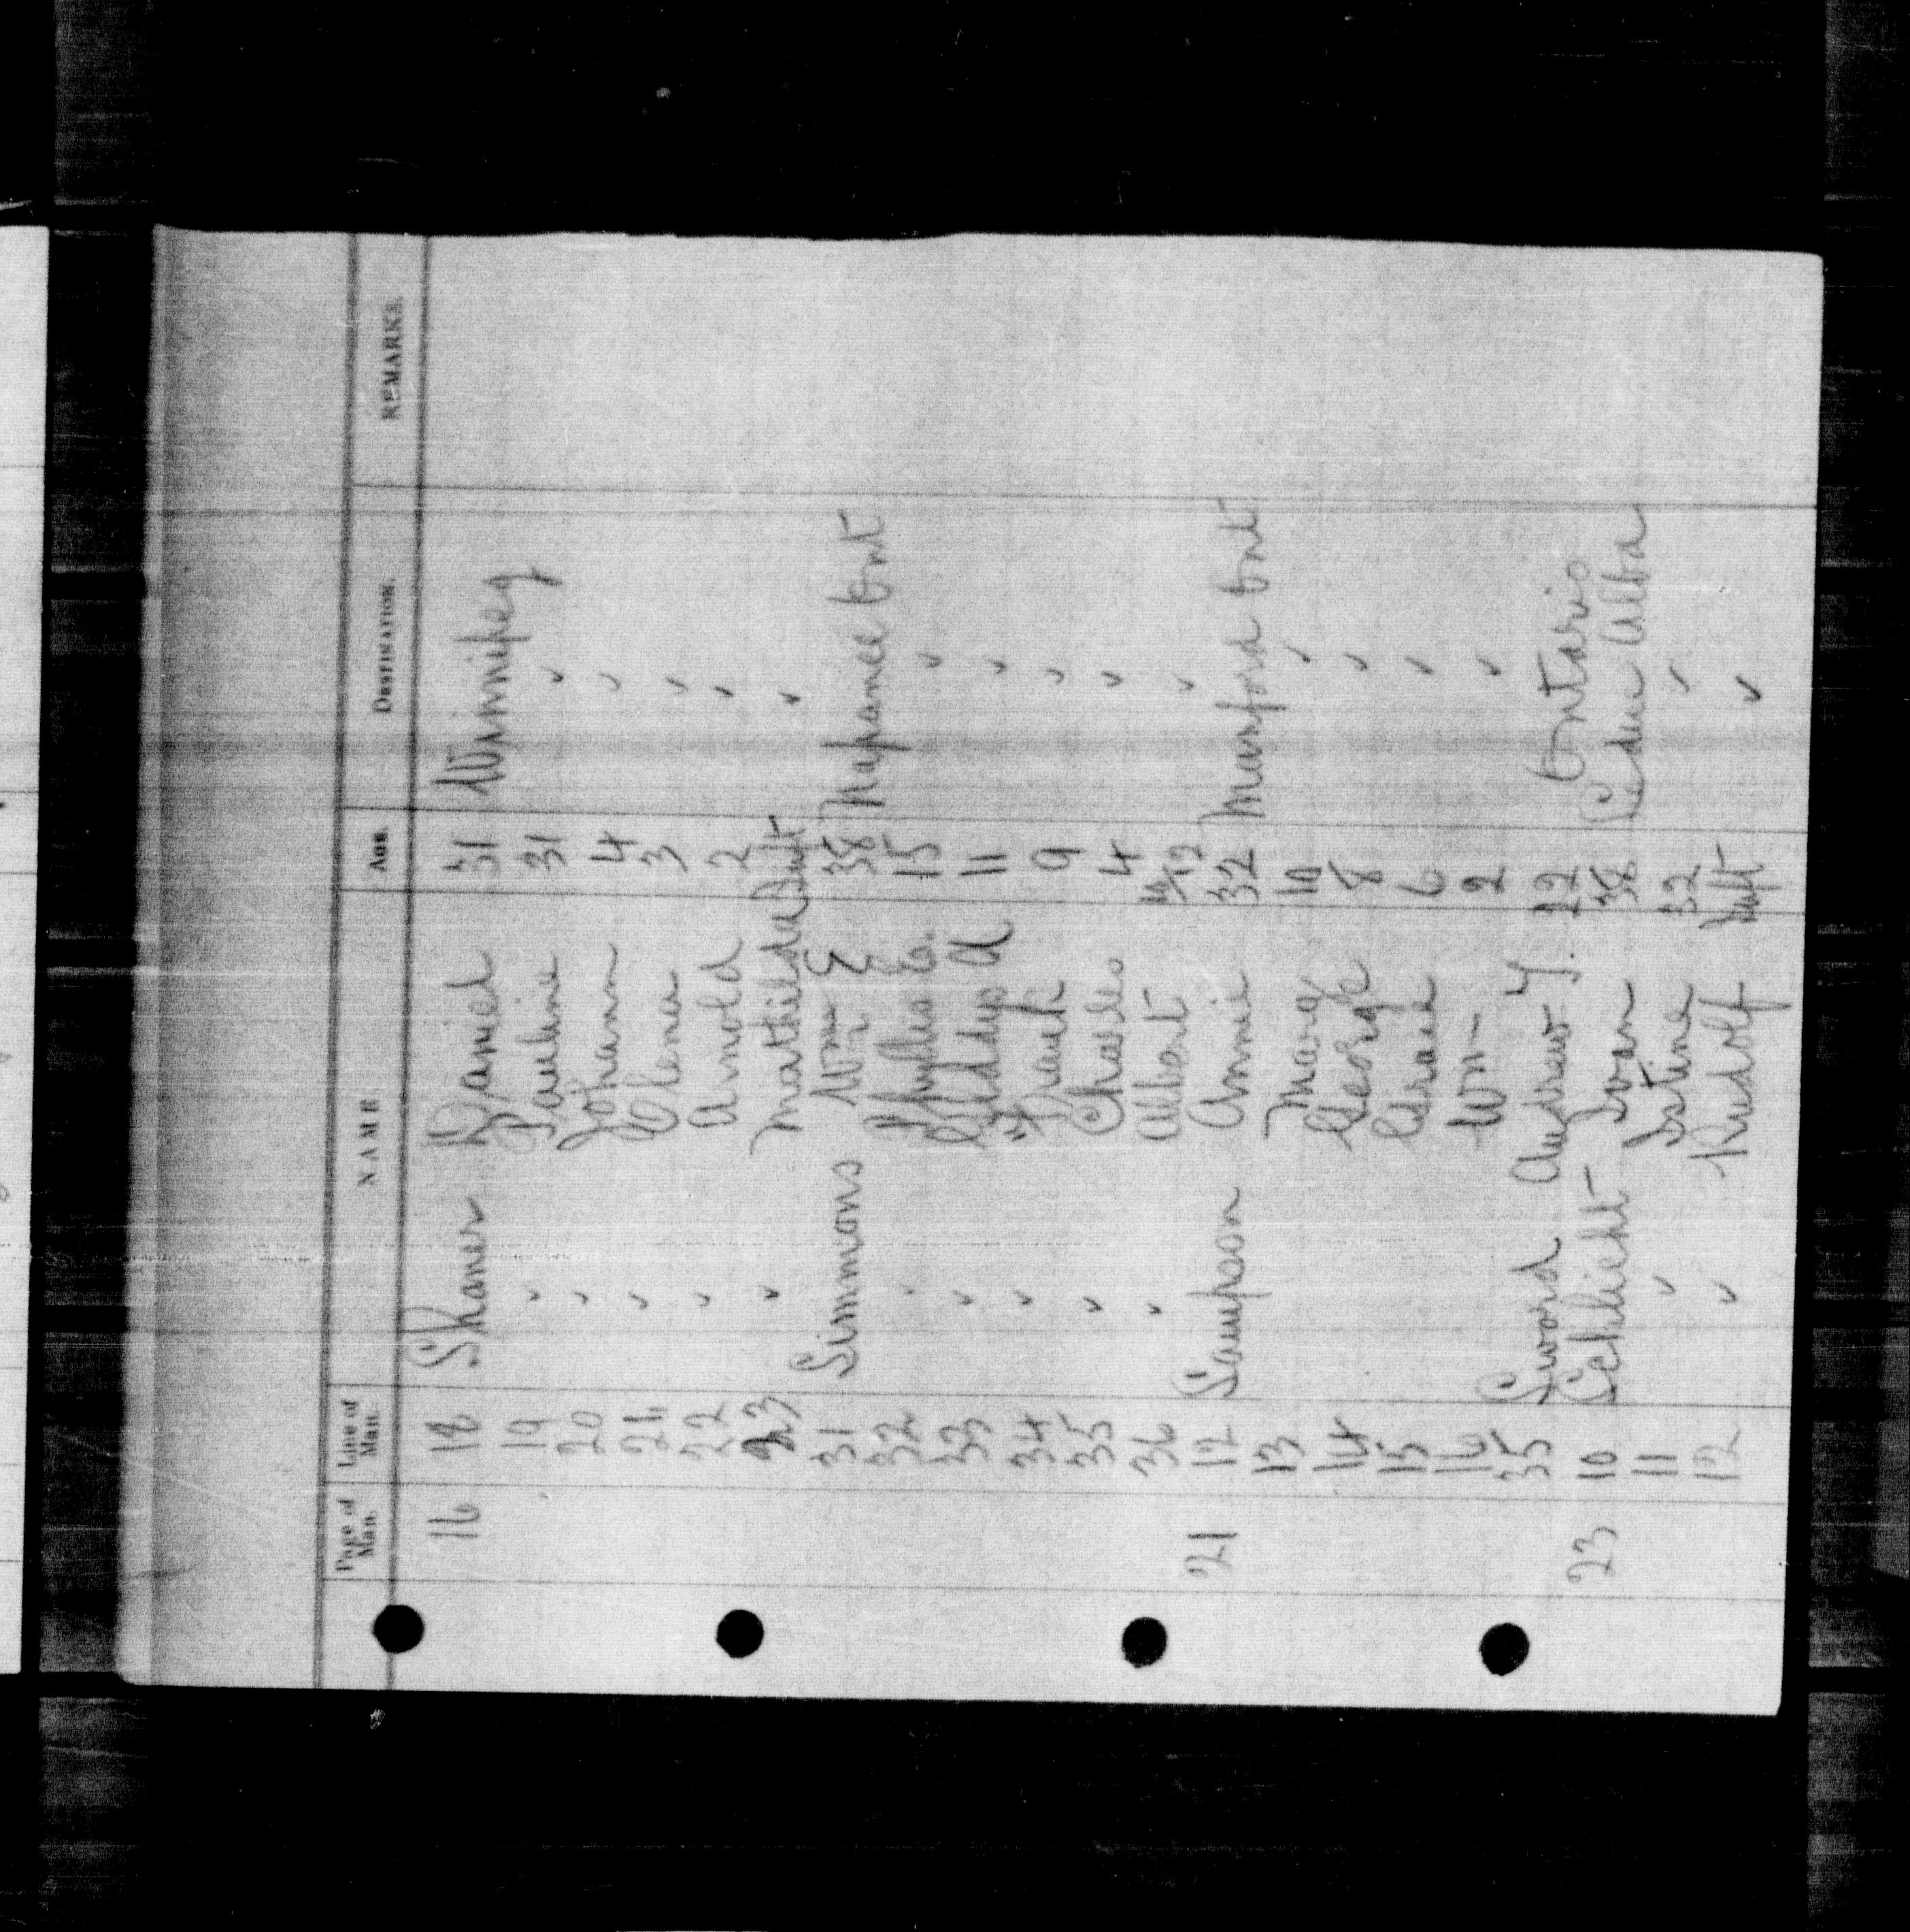 Page of Man. Line of Man. NAME AGE. DESTINATION. REMARKS.
16 18 Shaner Daniel 31 Winnipeg
19 " Pauline 31 "
20 " Johann 4 "
21 " 3 "
22 " Arnold 2 "
23 " Mathilda Inft "
31 Simmons Wm E 38 Napanee Ont
32 " Phyllis E. 15 "
33 " Gladys A 11 "
34 " Frank 9 "
35 " Charles 4 "
36 " Albert 10/12 "
21 12 Sampson Annie 32 Munford Ont
13 Mary 10 "
14 George 8 "
15 6 "
16 Wm 2 "
35 Sword Andrew T. 22 Ontario
23 10 Schlicht Ivan 38 Leduc Alba
11 " Istine 32 "
12 " Rudolf Inft "